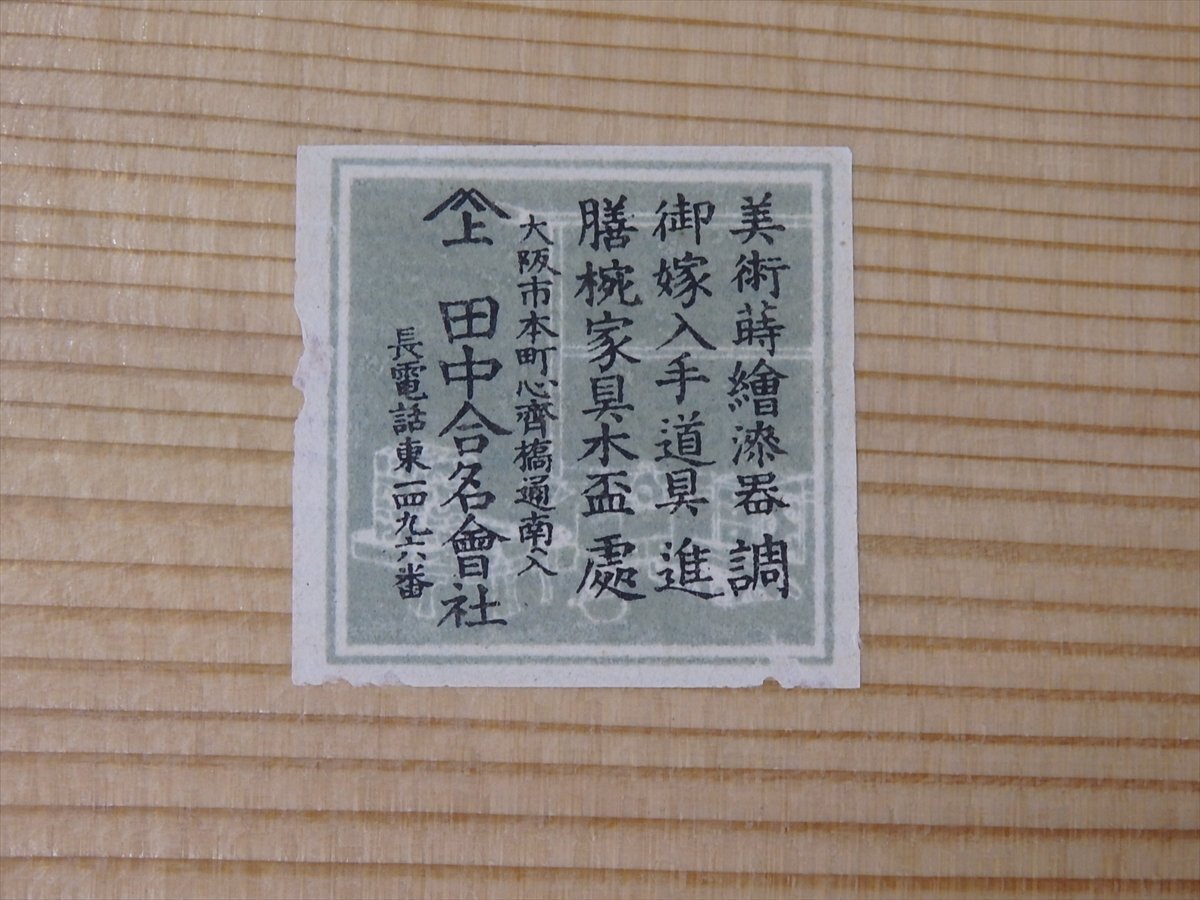 美術蒔繪漆器 調
御嫁入手道具 進
膳椀家具木盃 處
大阪市本町心齊橋通南入
上 田中合名會社
長電話東一四九六番